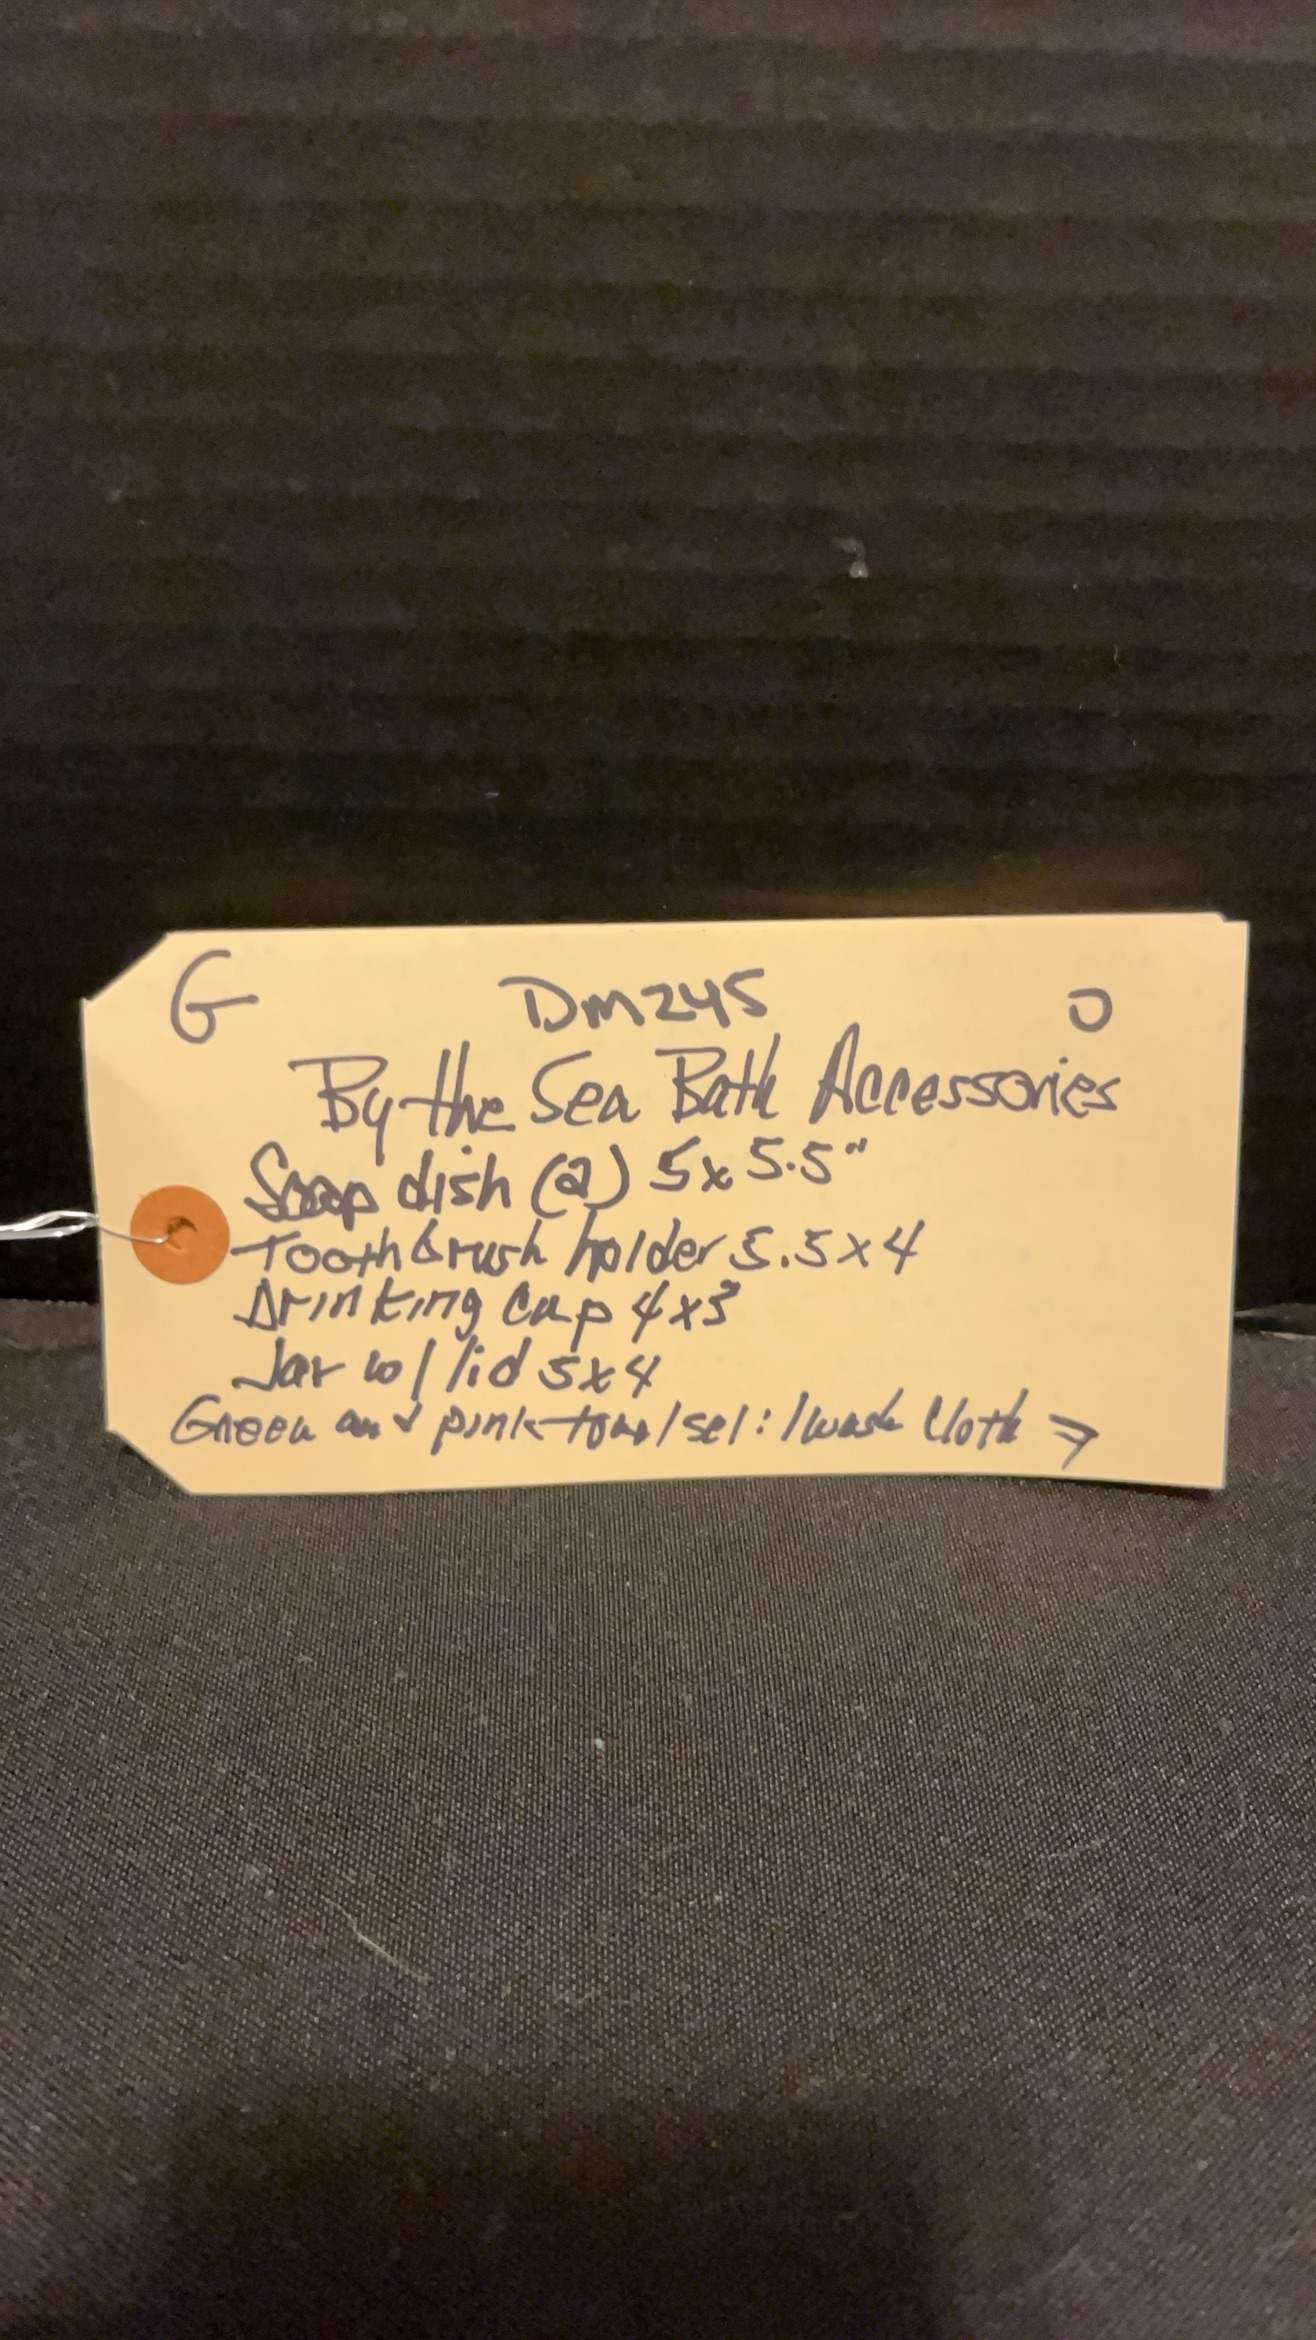 G DM245 O
By the Sea Bath Accessories
Soap dish (2) 5x5.5"
Toothbrush holder 5.5x4
Drinking cup 4x3
Jar w/ lid 5x4
Green and pink towel set: 1 wash cloth →